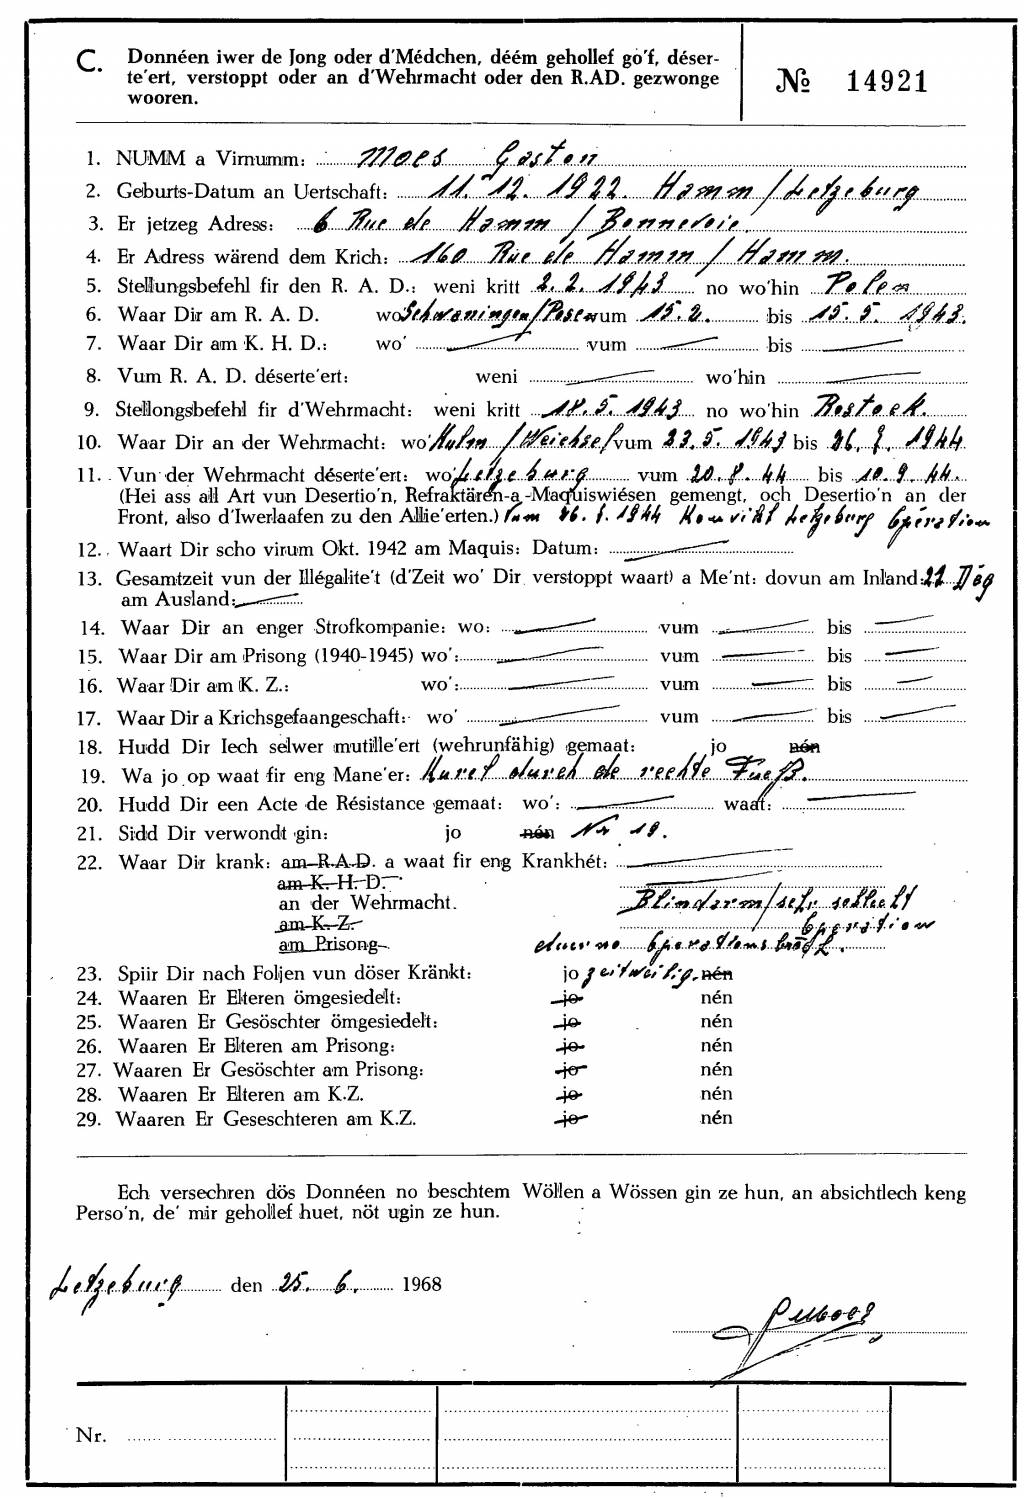 C. Donnéen iwer de Jong oder d'Médchen, déém gehollef go'f, déser-
te'ert, verstoppt oder an d'Wehrmacht oder den R.AD. gezwonge
wooren.
№ 14921
1. NUMM a Virnumm: Moes Gaston
2. Geburts-Datum an Uertschaft: 11. 12. 1922. Hamm / Letzeburg
3. Er jetzeg Adress: 6 Rue de Hamm / Bonnevoie.
4. Er Adress wärend dem Krich: 160 Rue de Hamm / Hamm.
5. Stellungsbefehl fir den R. A. D.: weni kritt 2. 2. 1943 no wo'hin Polen
6. Waar Dir am R. A. D. wo Schwaningen/Posen vum 15. 2. bis 15. 5. 1943.
7. Waar Dir am K. H. D.: wo' vum bis
8. Vum R. A. D. déserte'ert: weni wo'hin
9. Stellongsbefehl fir d'Wehrmacht: weni kritt 18. 5. 1943 no wo'hin Rostock.
10. Waar Dir an der Wehrmacht: wo' Kulm / Weichsel vum 23. 5. 1943 bis 26. 7. 1944
11. Vun der Wehrmacht déserte'ert: wo' Letzeburg vum 20. 8. 44 bis 10. 9. 44.
(Hei ass all Art vun Desertio'n, Refraktären-a-Maquiswiésen gemengt, och Desertio'n an der
Front, also d'Iwerlaafen zu den Allie'erten.) Vum 1944 Konvikt Letzeburg Operation
12. Waart Dir scho virum Okt. 1942 am Maquis: Datum:
13. Gesamtzeit vun der Illégalite't (d'Zeit wo' Dir verstoppt waart) a Me'nt: dovun am Inland: 22 Dég
am Ausland:
14. Waar Dir an enger Strofkompanie: wo: vum bis
15. Waar Dir am Prisong (1940-1945) wo': vum bis
16. Waar Dir am K. Z.: wo': vum bis
17. Waar Dir a Krichsgefaangeschaft: wo' vum bis
18. Hudd Dir Iech selwer mutille'ert (wehrunfähig) gemaat: jo nén
19. Wa jo op waat fir eng Mane'er: durch de rechte Fueß.
20. Hudd Dir een Acte de Résistance gemaat: wo': waat:
21. Sidd Dir verwondt gin: jo nén Nr 19.
22. Waar Dir krank: am R.A.D. a waat fir eng Krankhét:
am K. H. D.
an der Wehrmacht. Blindarm/sehr schlecht
am K. Z. Operation
am Prisong duerno Operationsbroch.
23. Spiir Dir nach Foljen vun döser Kränkt: jo zeitweilig. nén
24. Waaren Er Elteren ömgesiedelt: jo nén
25. Waaren Er Gesöschter ömgesiedelt: jo nén
26. Waaren Er Elteren am Prisong: jo nén
27. Waaren Er Gesöschter am Prisong: jo nén
28. Waaren Er Elteren am K.Z. jo nén
29. Waaren Er Geseschteren am K.Z. jo nén
Ech versechren dös Donnéen no beschtem Wöllen a Wössen gin ze hun, an absichtlech keng
Perso'n, de' mir gehollef huet, nöt ugin ze hun.
Letzeburg den 25. 6. 1968
Nr.